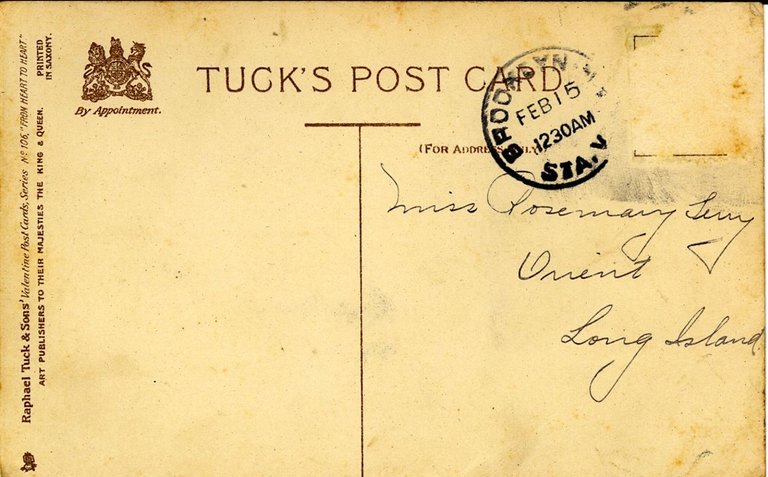 Raphael Tuck & Sons' Valentine Post Cards, Series No 106, "FROM HEART TO HEART" PRINTED IN SAXONY.
ART PUBLISHERS TO THEIR MAJESTIES THE KING & QUEEN.
By Appointment.
TUCK'S POST CARD.
(FOR ADDRESS ONLY.)
BROOKLYN, N.Y.
FEB 15
1230AM
STA. V
Miss Rosemary Terry
Orient
Long Island.